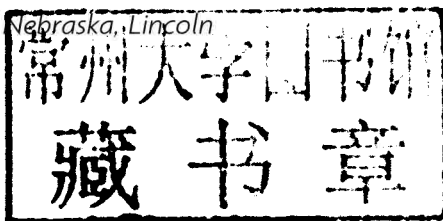 Nebraska, Lincoln
常州大学图书馆
藏书章